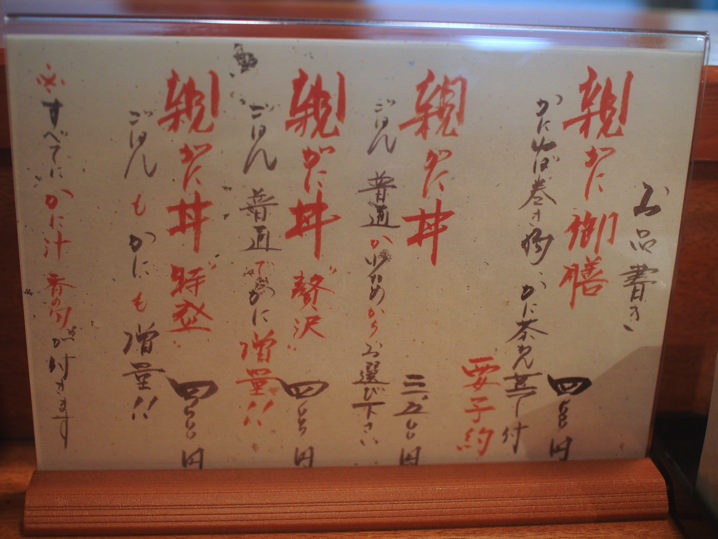 お品書き
親がに御膳
かにそば巻き物、かに茶わん蒸し付
要予約
親がに丼 三、五〇〇円
ごはん 普通か少なめからお選び下さい
親がに丼 〝贅沢〟
ごはん 普通でかに増量!!
親がに丼 〝特盛〟
ごはんもかにも増量!!
※すべてにかに汁 香の物が付きます